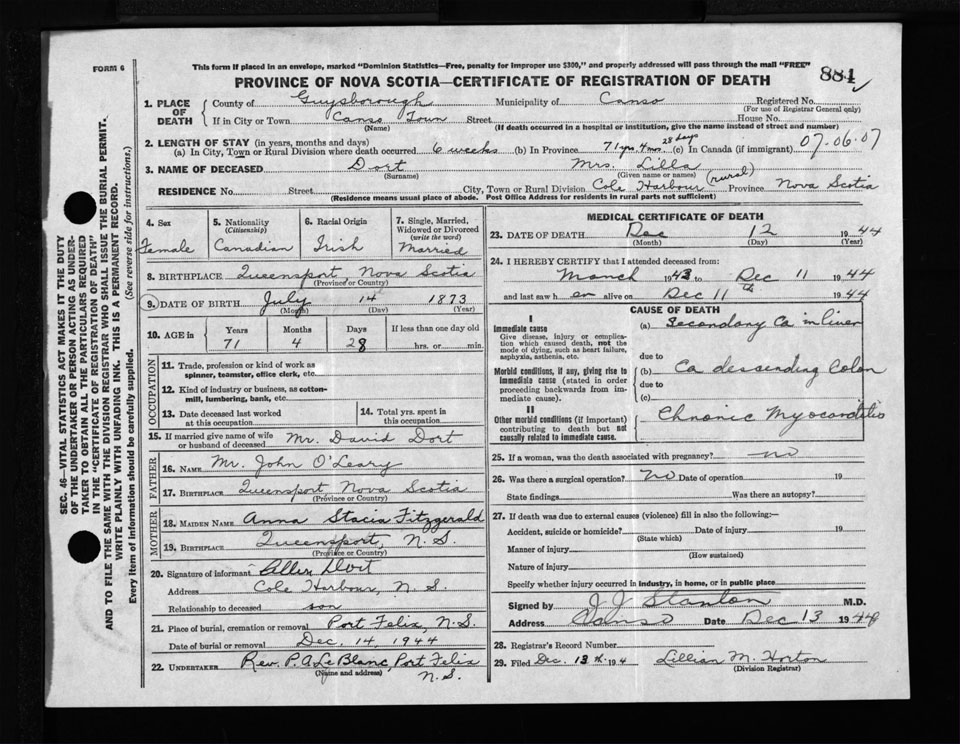 FORM 6
This form if placed in an envelope, marked "Dominion Statistics—Free, penalty for improper use $300," and properly addressed will pass through the mail "FREE"
PROVINCE OF NOVA SCOTIA—CERTIFICATE OF REGISTRATION OF DEATH
884
SEC. 46—VITAL STATISTICS ACT MAKES IT THE DUTY
OF THE UNDERTAKER OR PERSON ACTING AS UNDER-
TAKER TO OBTAIN ALL THE PARTICULARS REQUIRED
IN THE "CERTIFICATE OF REGISTRATION OF DEATH"
AND TO FILE THE SAME WITH THE DIVISION REGISTRAR WHO SHALL ISSUE THE BURIAL PERMIT.
WRITE PLAINLY WITH UNFADING INK. THIS IS A PERMANENT RECORD.
Every item of Information should be carefully supplied. (See reverse side for instructions.)
1. PLACE OF DEATH County of Guysborough Municipality of Canso Registered No.
(For use of Registrar General only)
If in City or Town Canso Town Street House No.
(Name) (If death occurred in a hospital or institution, give the name instead of street and number)
2. LENGTH OF STAY (in years, months and days)
(a) In City, Town or Rural Division where death occurred 6 weeks (b) In Province 71 yrs. 4 mos. 28 days (c) In Canada (if immigrant) 07.06.07
3. NAME OF DECEASED Dort Mrs. Lilla
(Surname) (Given name or names)
RESIDENCE No. Street City, Town or Rural Division Cole Harbour (rural) Province Nova Scotia
(Residence means usual place of abode. Post Office Address for residents in rural parts not sufficient)
4. Sex Female
5. Nationality (Citizenship) Canadian
6. Racial Origin Irish
7. Single, Married, Widowed or Divorced (write the word) Married
8. BIRTHPLACE Queensport Nova Scotia
(Province or Country)
9. DATE OF BIRTH July 14 1873
(Month) (Day) (Year)
10. AGE in Years Months Days If less than one day old
71 4 28 hrs. or min.
OCCUPATION
11. Trade, profession or kind of work as spinner, teamster, office clerk, etc.
12. Kind of industry or business, as cotton-mill, lumbering, bank, etc.
13. Date deceased last worked at this occupation
14. Total yrs. spent in this occupation
15. If married give name of wife or husband of deceased Mr. David Dort
FATHER
16. NAME Mr. John O'Leary
17. BIRTHPLACE Queensport Nova Scotia
(Province or Country)
MOTHER
18. MAIDEN NAME Anna Stacia Fitzgerald
19. BIRTHPLACE Queensport, N.S.
(Province or Country)
20. Signature of informant Allen Dort
Address Cole Harbour, N.S.
Relationship to deceased son
21. Place of burial, cremation or removal Port Felix, N.S.
Date of burial or removal Dec. 14, 1944
22. UNDERTAKER Rev. P. A. LeBlanc, Port Felix
(Name and address) N.S.
MEDICAL CERTIFICATE OF DEATH
23. DATE OF DEATH Dec 12 1944
(Month) (Day) (Year)
24. I HEREBY CERTIFY that I attended deceased from:
March 1943 to Dec 11 1944
and last saw her alive on Dec 11th 1944
CAUSE OF DEATH
I
Immediate cause
Give disease, injury or complication which caused death, not the mode of dying, such as heart failure, asphyxia, asthenia, etc.
(a) Secondary Ca in liver
due to
Morbid conditions, if any, giving rise to immediate cause (stated in order proceeding backwards from immediate cause).
(b) Ca descending Colon
due to
(c)
II
Other morbid conditions (if important) contributing to death but not causally related to immediate cause.
Chronic Myocarditis
25. If a woman, was the death associated with pregnancy? no
26. Was there a surgical operation? no Date of operation 19
State findings Was there an autopsy?
27. If death was due to external causes (violence) fill in also the following:—
Accident, suicide or homicide? Date of injury 19
(State which)
Manner of injury
(How sustained)
Nature of injury
Specify whether injury occurred in industry, in home, or in public place
Signed by J J Stanton M.D.
Address Canso Date Dec 13 1944
28. Registrar's Record Number
29. Filed Dec. 13th 194 Lillian M. Horton
(Division Registrar)